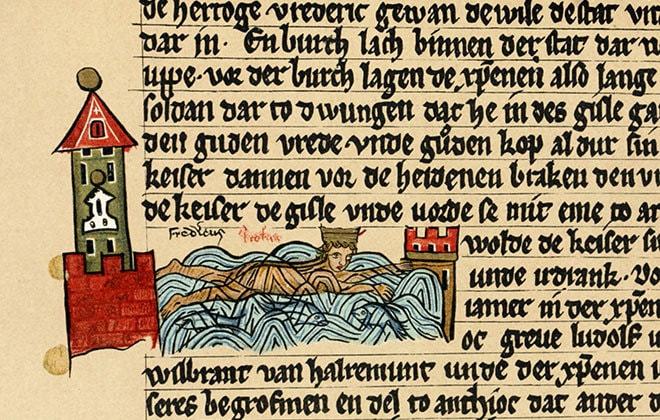 de hertoge vrederic gewan de wile de stat vn
dar in· En burch lach binnen der stat dar
uppe· vor der burch lagen de xpenen also lange
soldan dar to dwungen dat he in des gisle ga
den guden vrede vnde guden kop al dur sin
keiser dannen vor de heidenen braken den v
de keiser de gisle vnde vorde se mit eme to ar
Fredricus
wolde de keiser si
unde irdrank· Vo
iamer in der xpen
oc greve ludolf u
wilbrant van halremunt unde der xpenen
seres begrofmen en del to anthioc dat ander d